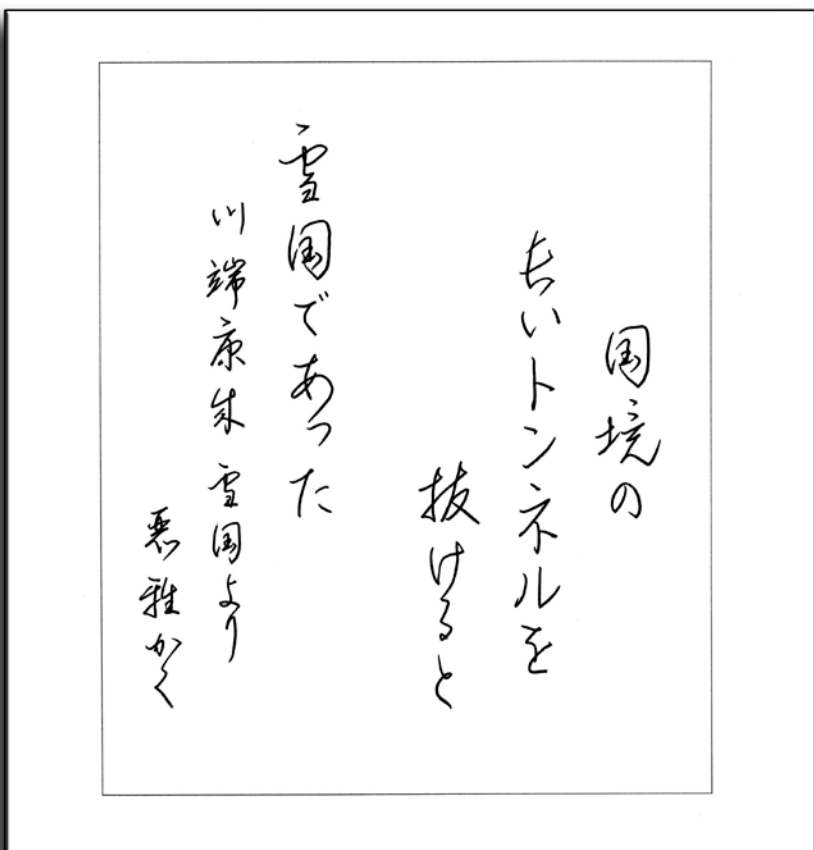 国境の
長いトンネルを
抜けると
雪国であった
川端康成 雪国より
雅かく